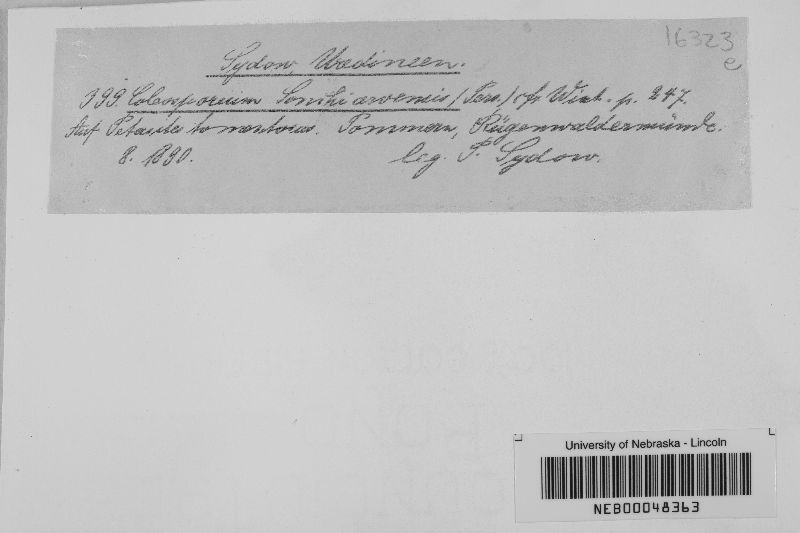 16323
e
Sydow, Uredineen.
399. Coleosporium Sonchi arvensis (Pers.) cfr. Wint. p. 247.
Auf Petasites tomentosus. Pommern, Rügenwaldermünde.
8. 1890. leg. P. Sydow.
University of Nebraska - Lincoln
NEB00048363